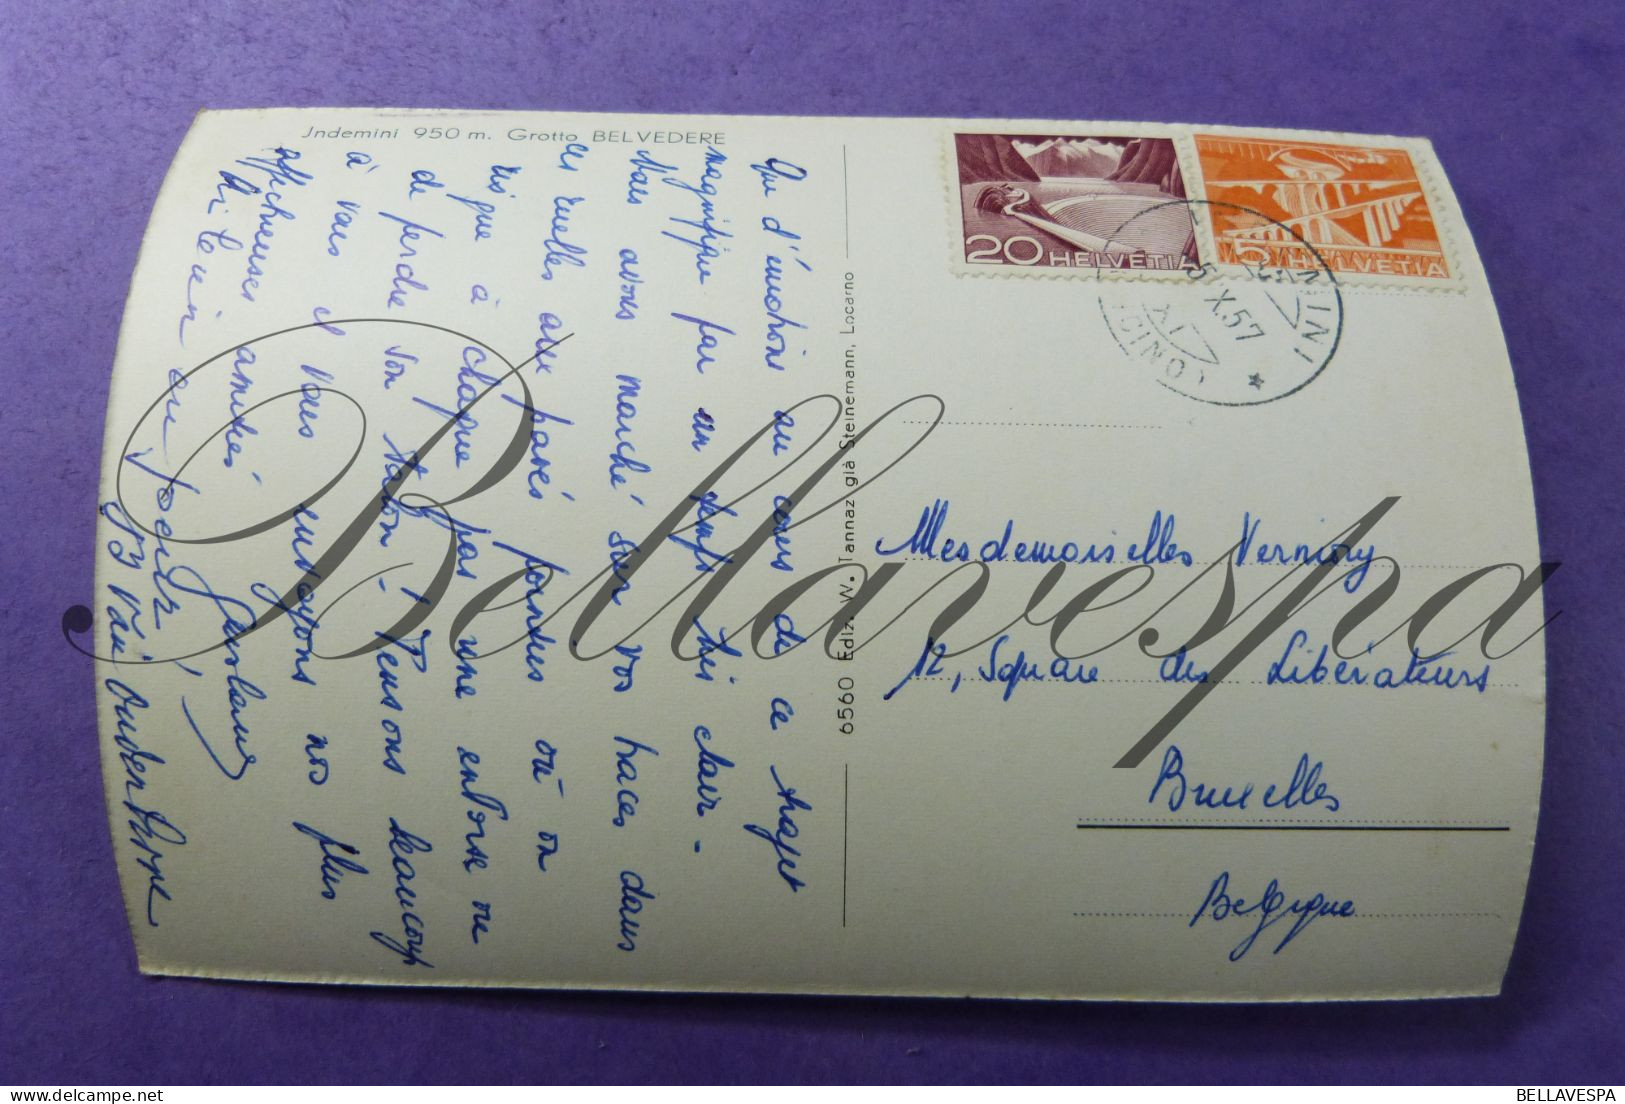 Jndemini 950 m. Grotto BELVEDERE
Que d'émotions au cours de ce trajet
magnifique par un temps très clair -
Nous avons marché sur vos traces dans
ces ruelles aux pavés pointus où on
risque à chaque pas une entorse ou
de perdre son talon - Pensons beaucoup
à vous et vous envoyons nos plus
affectueuses amitiés
6560 Ediz. W. Tannaz già Steinemann, Locarno
20 HELVETIA
5 HELVETIA
MINI
X.57
Mesdemoiselles Vernimy
12, Square des Libérateurs
Bruxelles
Belgique
Bellavespa
BELLAVESPA